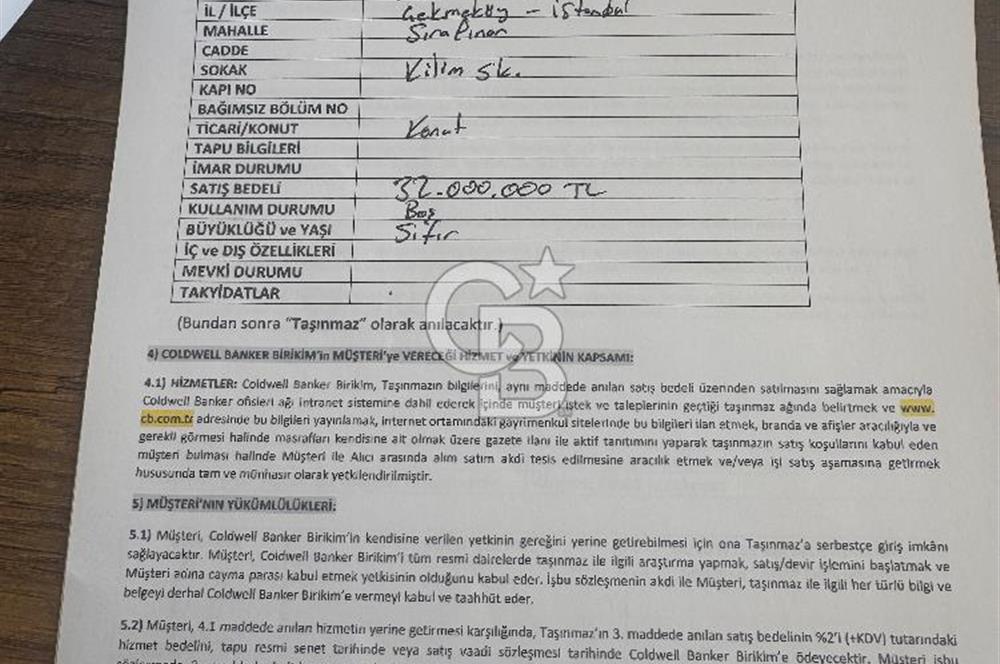 İL / İLÇE Çekmeköy - İstanbul
MAHALLE Sırapınar
CADDE
SOKAK Kilim Sk.
KAPI NO
BAĞIMSIZ BÖLÜM NO
TİCARİ/KONUT Konut
TAPU BİLGİLERİ
İMAR DURUMU
SATIŞ BEDELİ 32.000.000 TL
KULLANIM DURUMU Boş
BÜYÜKLÜĞÜ ve YAŞI Sıfır
İÇ ve DIŞ ÖZELLİKLERİ
MEVKİ DURUMU
TAKYİDATLAR
CB
(Bundan sonra "Taşınmaz" olarak anılacaktır.)
4) COLDWELL BANKER BİRİKİM'in MÜŞTERİ'ye VERECEĞİ HİZMET ve YETKİNİN KAPSAMI:
4.1) HİZMETLER: Coldwell Banker Birikim, Taşınmazın bilgilerini, aynı maddede anılan satış bedeli üzerinden satılmasını sağlamak amacıyla
Coldwell Banker ofisleri ağı intranet sistemine dahil ederek içinde müşteri istek ve taleplerinin geçtiği taşınmaz ağında belirtmek ve www.
cb.com.tr adresinde bu bilgileri yayınlamak, internet ortamındaki gayrimenkul sitelerinde bu bilgileri ilan etmek, branda ve afişler aracılığıyla ve
gerekli görmesi halinde masrafları kendisine ait olmak üzere gazete ilanı ile aktif tanıtımını yaparak taşınmazın satış koşullarını kabul eden
müşteri bulması halinde Müşteri ile Alıcı arasında alım satım akdi tesis edilmesine aracılık etmek ve/veya işi satış aşamasına getirmek
hususunda tam ve münhasır olarak yetkilendirilmiştir.
5) MÜŞTERİ'NİN YÜKÜMLÜLÜKLERİ:
5.1) Müşteri, Coldwell Banker Birikim'in kendisine verilen yetkinin gereğini yerine getirebilmesi için ona Taşınmaz'a serbestçe giriş imkânı
sağlayacaktır. Müşteri, Coldwell Banker Birikim'i tüm resmi dairelerde taşınmaz ile ilgili araştırma yapmak, satış/devir işlemini başlatmak ve
Müşteri adına cayma parası kabul etmek yetkisinin olduğunu kabul eder. İşbu sözleşmenin akdi ile Müşteri, taşınmaz ile ilgili her türlü bilgi ve
belgeyi derhal Coldwell Banker Birikim'e vermeyi kabul ve taahhüt eder.
5.2) Müşteri, 4.1 maddede anılan hizmetin yerine getirmesi karşılığında, Taşınmaz'ın 3. maddede anılan satış bedelinin %2'i (+KDV) tutarındaki
hizmet bedelini, tapu resmi senet tarihinde veya satış vaadi sözleşmesi tarihinde Coldwell Banker Birikim'e ödeyecektir. Müşteri işbu